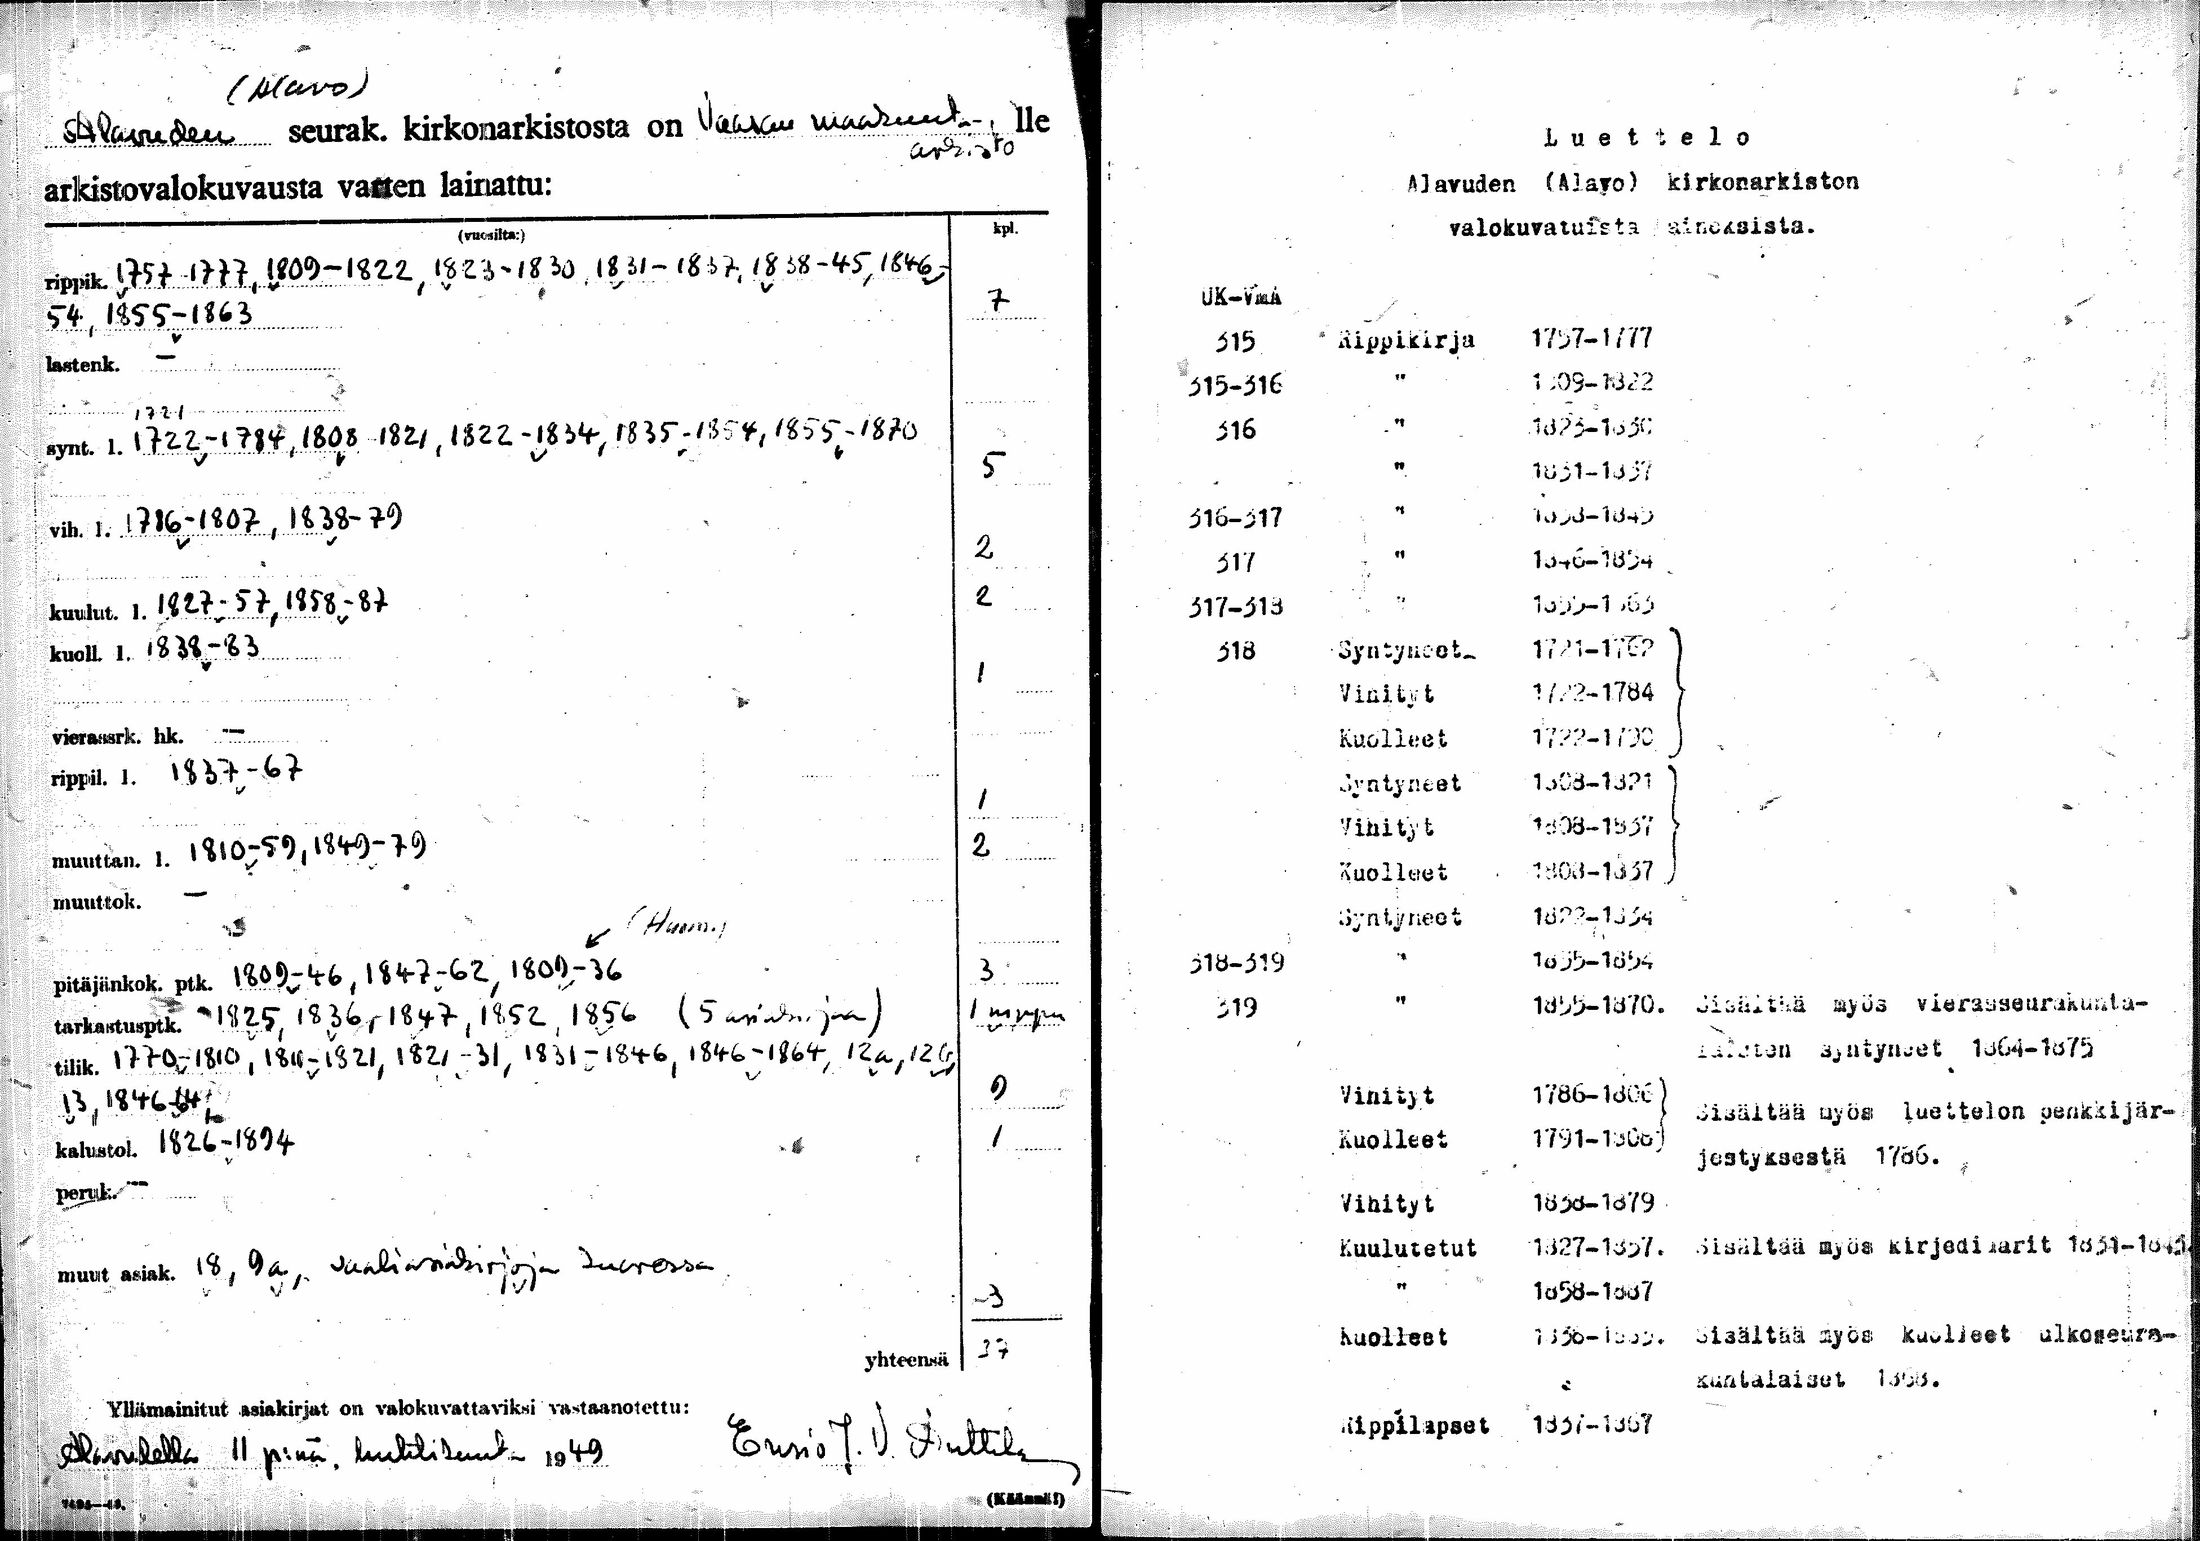 (Alavo)
Alavuden seurak. kirkonarkistosta on Vaasan maakunta-, lle
arkisto
arkistovalokuvausta varten lainattu:
(vuosilta:) kpl.
rippik. 1757-1777, 1809-1822, 1823-1830, 1831-1837, 1838-45, 1846-
54, 1855-1863 7
lastenk. —
1721
synt. l. 1722-1784, 1808-1821, 1822-1834, 1835-1854, 1855-1870
5
vih. l. 1786-1807, 1838-79
2
kuulut. l. 1827-57, 1858-87 2
kuoll. l. 1838-83
1
vierassrk. hk. —
rippil. l. 1837-67
1
muuttan. l. 1810-59, 1849-79 2
muuttok. —
(Huom.)
pitäjänkok. ptk. 1809-46, 1847-62, 1809-36 3
tarkastusptk. 1825, 1836, 1847, 1852, 1856 (5 asiakirjaa) 1 nippu
tilik. 1770-1810, 1811-1821, 1821-31, 1831-1846, 1846-1864, 12a, 12b,
13, 1846-64, 9
kalustol. 1826-1894 1
peruk. —
muut asiak. 18, 9a, vaaliasiakirjoja kuoressa
3
yhteensä 37
Yllämainitut asiakirjat on valokuvattaviksi vastaanotettu:
Alavudella 11 p:nä huhtikuuta 1949 Ensio J. V.
(Käännä!)
Luettelo
Alavuden (Alavo) kirkonarkiston
valokuvatuista aineksista.
UK-VmA
315 Rippikirja 1757-1777
315-316 " 1809-1822
316 " 1823-1830
" 1831-1837
316-317 " 1838-1845
317 " 1846-1854
317-318 " 1855-1863
318 Syntyneet 1721-1762
Vihityt 1722-1784
Kuolleet 1722-1790
Syntyneet 1808-1821
Vihityt 1808-1837
Kuolleet 1808-1837
Syntyneet 1822-1834
318-319 " 1835-1854
319 " 1855-1870. Sisältää myös vierasseurakunta-
laisten syntyneet 1864-1875
Vihityt 1786-1806
Sisältää myös luettelon penkkijär-
Kuolleet 1791-1808
jestyksestä 1786.
Vihityt 1838-1879
Kuulutetut 1827-1857. Sisältää myös kirjediaarit 1831-1843
" 1858-1887
Kuolleet 1838-1883. Sisältää myös kuolleet ulkoseura-
kuntalaiset 1868.
Rippilapset 1837-1867